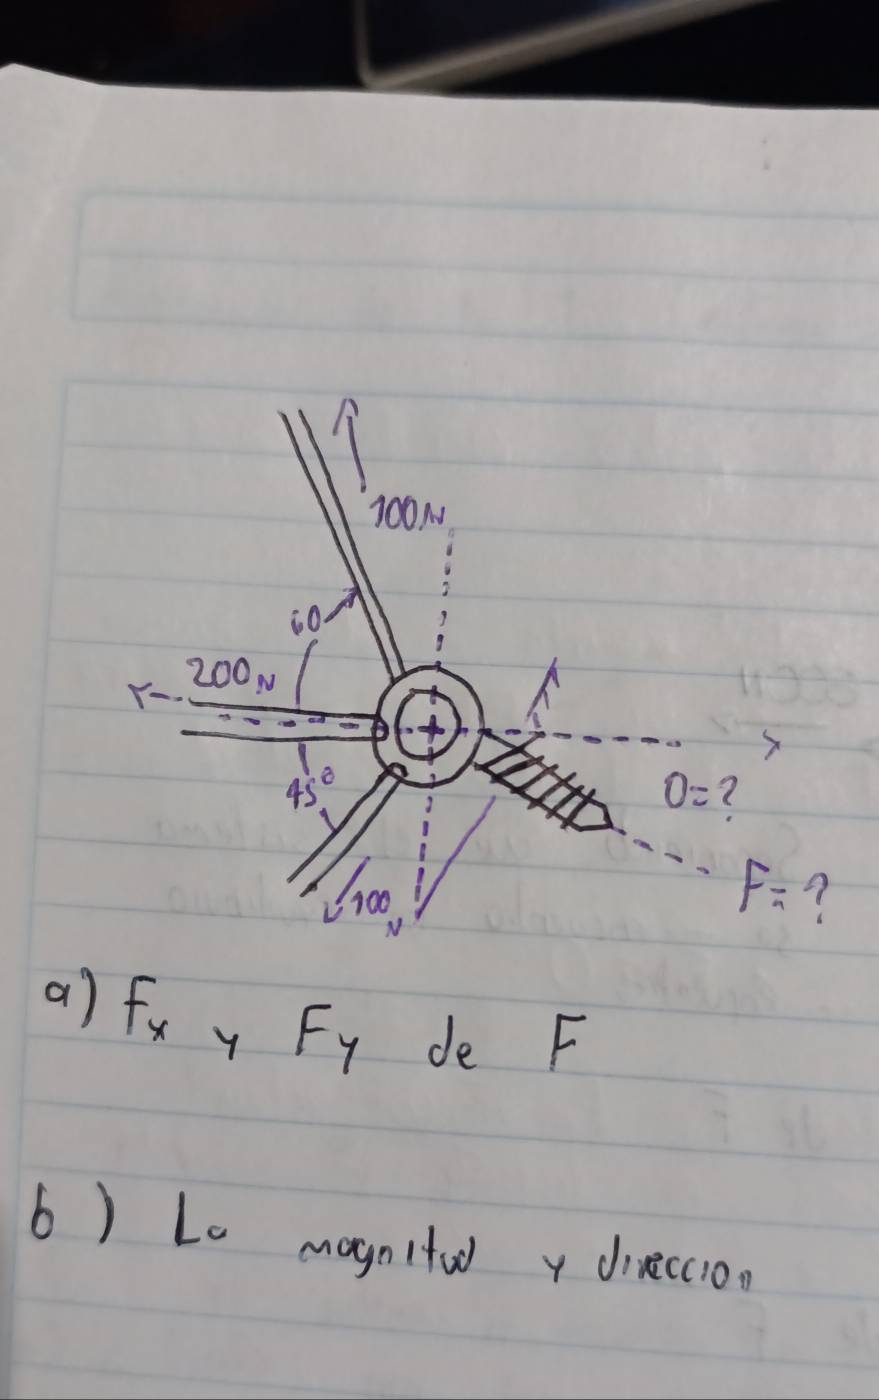 100N
60
200N
45°
θ=?
100N
F=?
a) Fx y Fy de F
b) La magnitud y direccion